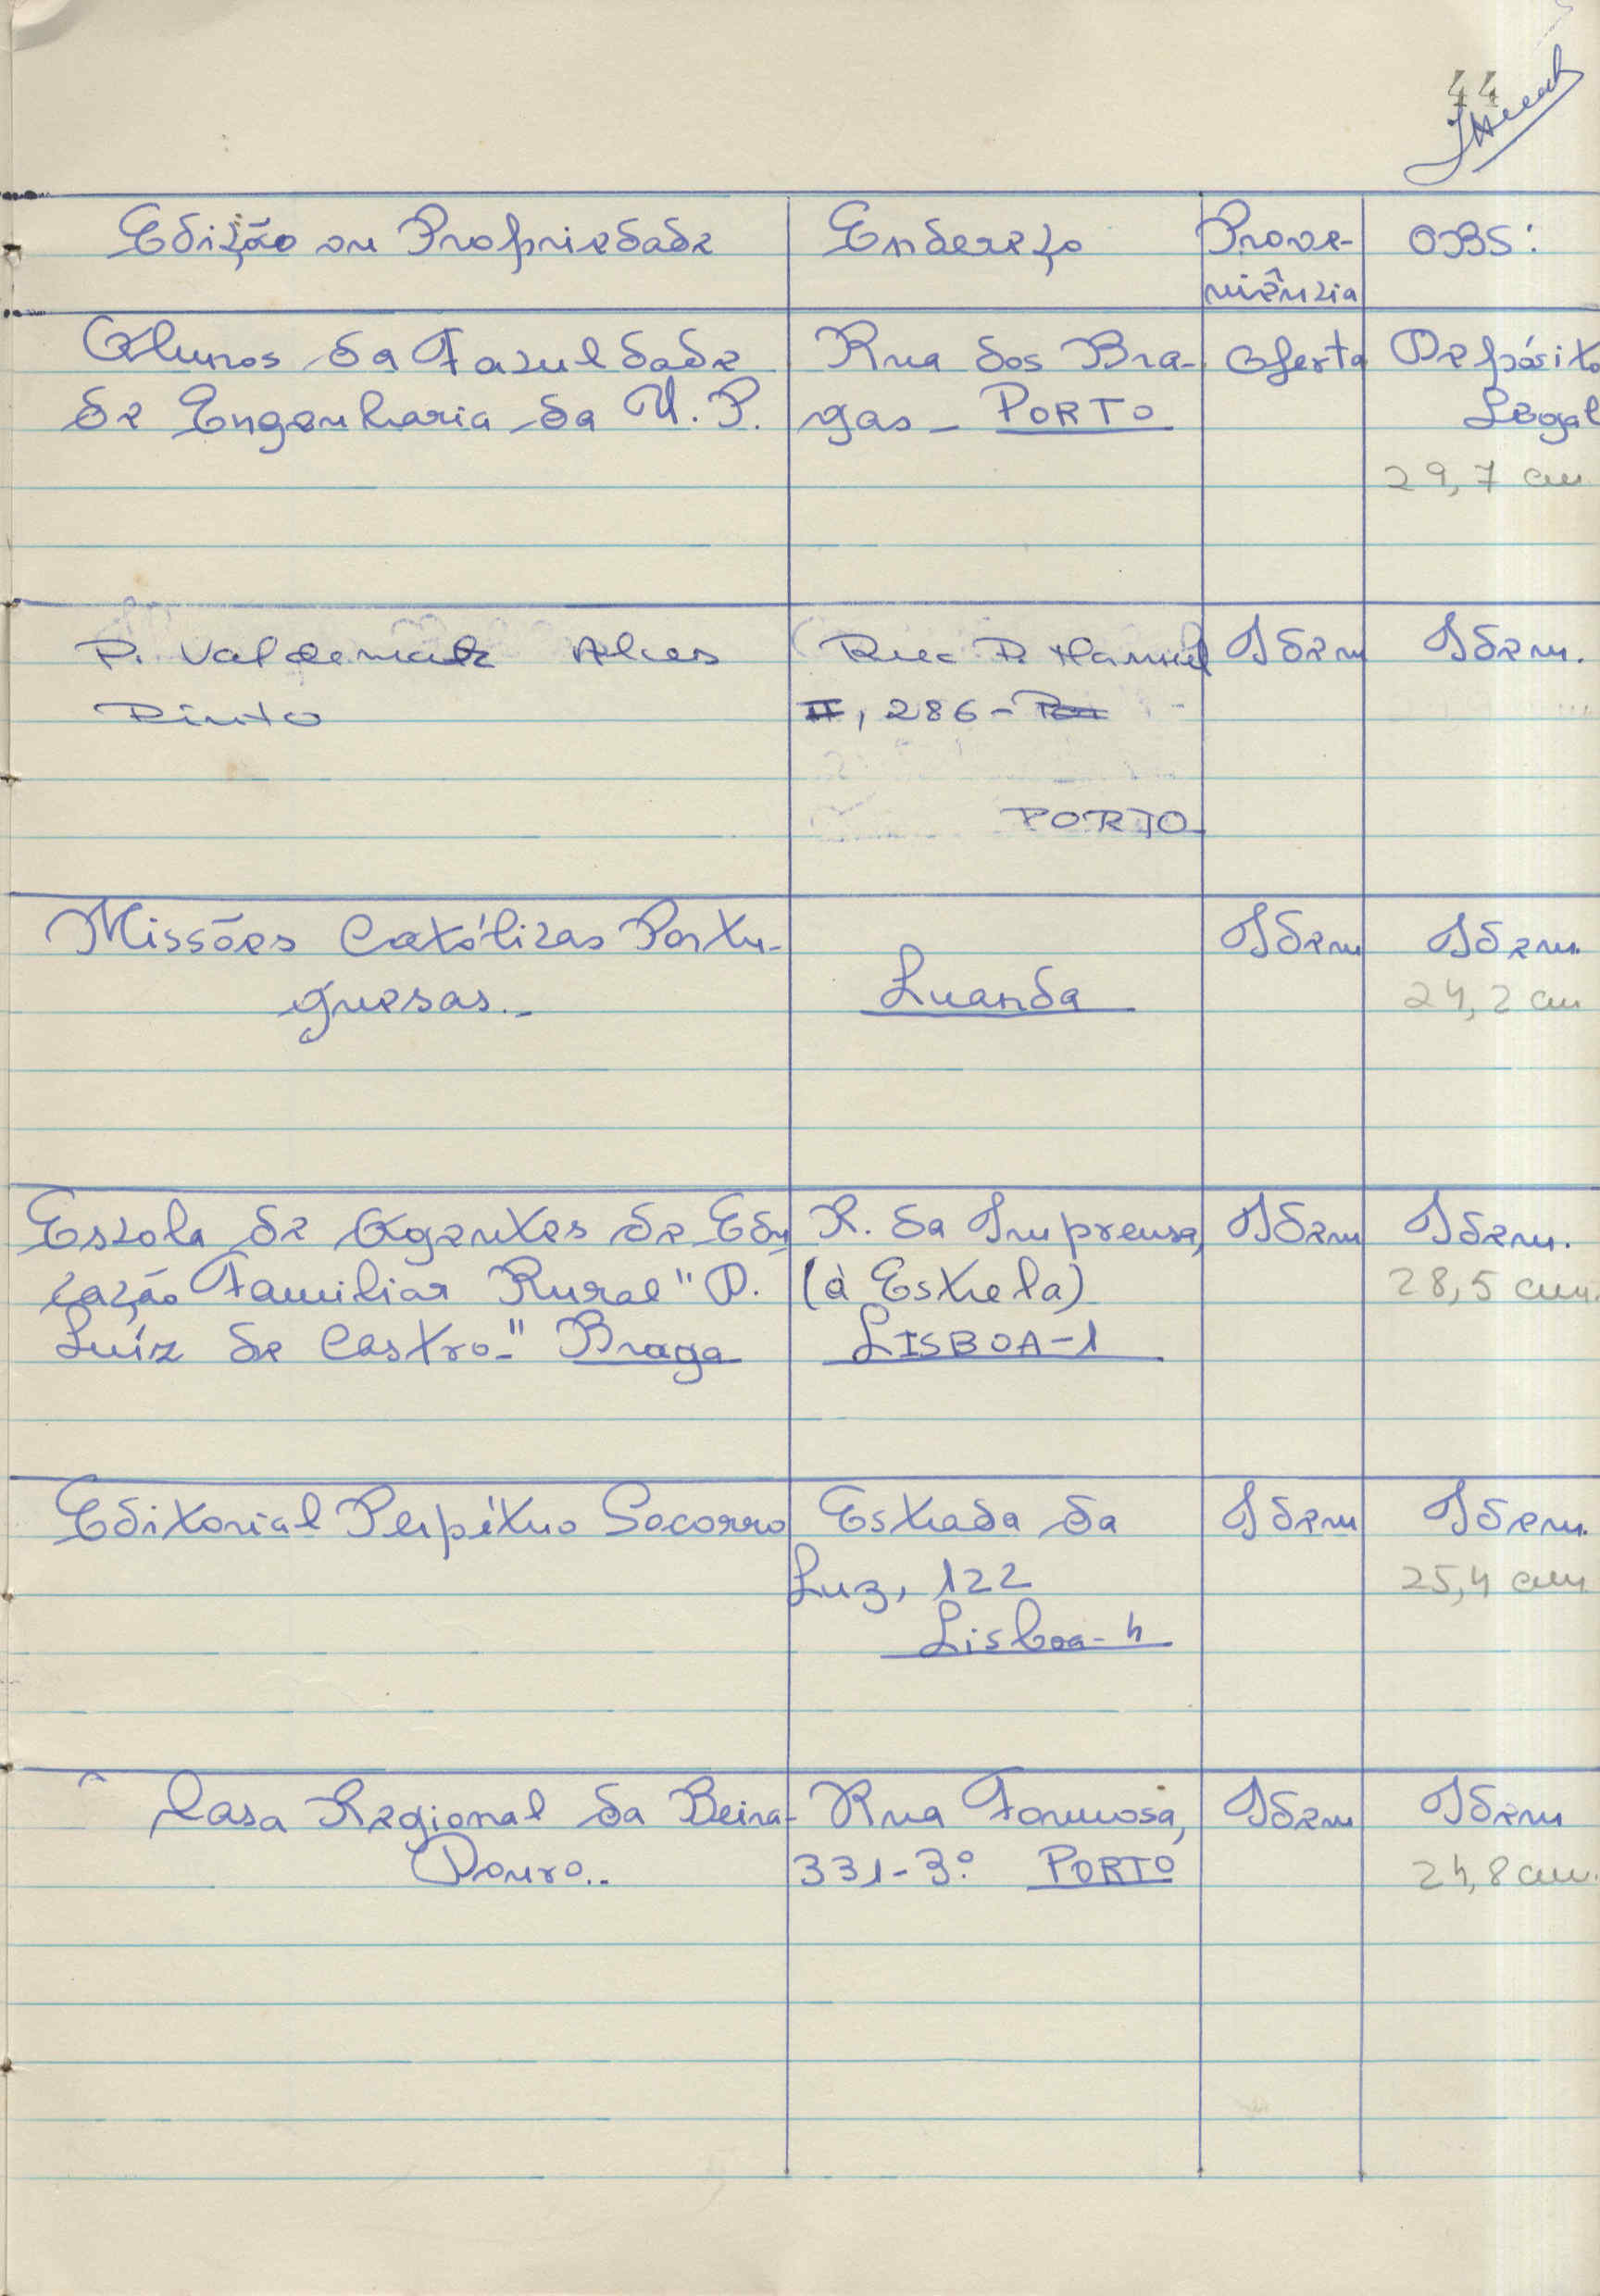 44
Edição ou Propriedade
Endereço
Prove-
niência
OBS:
Alunos da Faculdade
de Engenharia da U. P.
Rua dos Bra-
gas - PORTO
Oferta
Depósito
Legal
29,7 cm
P. Valdemar Alves
Pinto
Rua D. Manuel
II, 286 -
PORTO
Idem
Idem.
Missões Católicas Portu-
guesas.-
Luanda
Idem
Idem.
24,2 cm
Escola de Agentes de Edu
cação Familiar Rural "D.
Luíz de Castro-" Braga
R. da Imprensa,
(à Estrela)
LISBOA-1
Idem
Idem.
28,5 cm.
Editorial Perpétuo Socorro
Estrada da
Luz, 122
Lisboa-4
Idem
Idem.
25,4 cm
Casa Regional da Beira-
Douro..
Rua Formosa,
331-3º PORTO
Idem
Idem
24,8 cm.